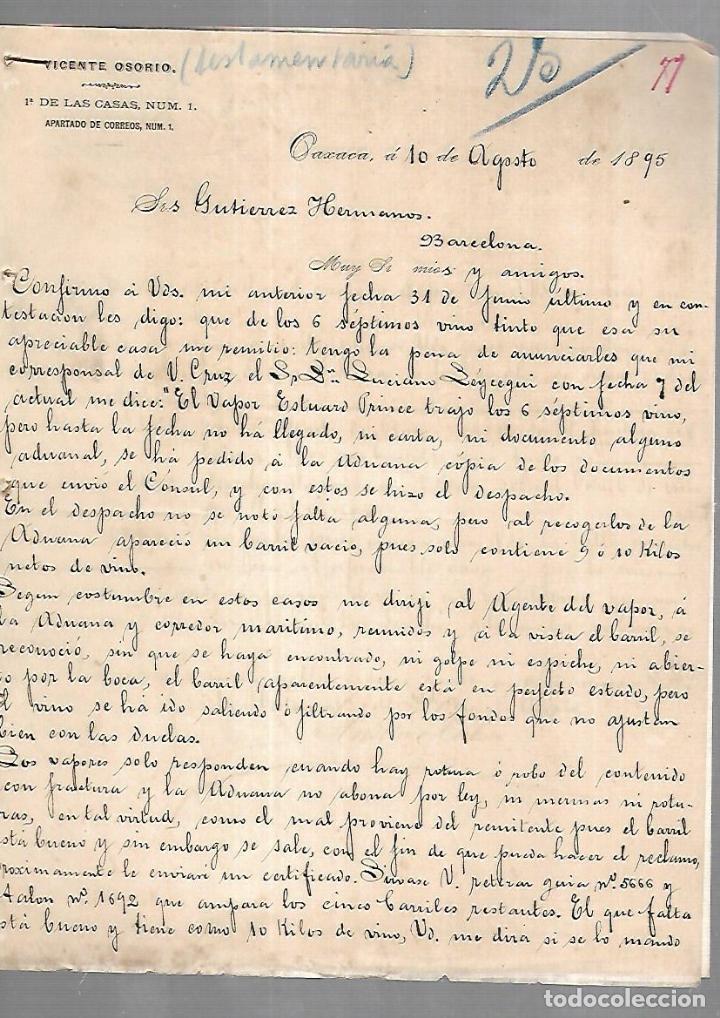 VICENTE OSORIO. (testamentaria)
1ª DE LAS CASAS, NUM. 1.
APARTADO DE CORREOS, NUM. 1.
77
Oaxaca, á 10 de Agosto de 1895
Srs Gutierrez Hermanos.
Barcelona.
Muy Sr mios y amigos.
Confirmo á Vds. mi anterior fecha 31 de Junio ultimo y en con-
testacion les digo: que de los 6 séptimos vino tinto que esa su
apreciable casa me remitio: tengo la pena de anunciarles que mi
corresponsal de V. Cruz el Sr Dn. Luciano Léycegui con fecha 7 del
actual me dice: "El Vapor Estuard Prince trajo los 6 séptimos vino,
pero hasta la fecha no há llegado, ni carta, ni documento alguno
aduanal, se há pedido á la Aduana cópia de los documentos
que envio el Cónsul, y con estos se hizo el despacho.
En el despacho no se notó falta alguna, pero al recogerlos de la
Aduana aparecio un barril vacio, pues solo contiene 9 ó 10 Kilos
netos de vino.
Segun costumbre en estos casos me dirijí al Agente del vapor, á
la Aduana y corredor maritimo, reunidos y á la vista el barril, se
reconoció, sin que se haya encontrado, ni golpe ni espiche, ni abier-
to por la boca, el barril aparentemente está en perfecto estado, pero
El vino se há ido saliendo ó filtrando por los fondos que no ajustan
bien con las duelas.
Los vapores solo responden cuando hay rotura ó robo del contenido
con fractura y la Aduana no abona por ley, ni mermas ni rotu-
ras, en tal virtud, como el mal proviene del remitente pues el barril
está bueno y sin embargo se sale, con el fin de que pueda hacer el reclamo,
proximamente le enviaré un certificado. Sirvase V. reterar guia nº. 5666 y
talon nº. 1692 que ampara los cinco barriles restantes. El que falta
está bueno y tiene como 10 Kilos de vino, Vd. me dirá si se lo mando
todocoleccion